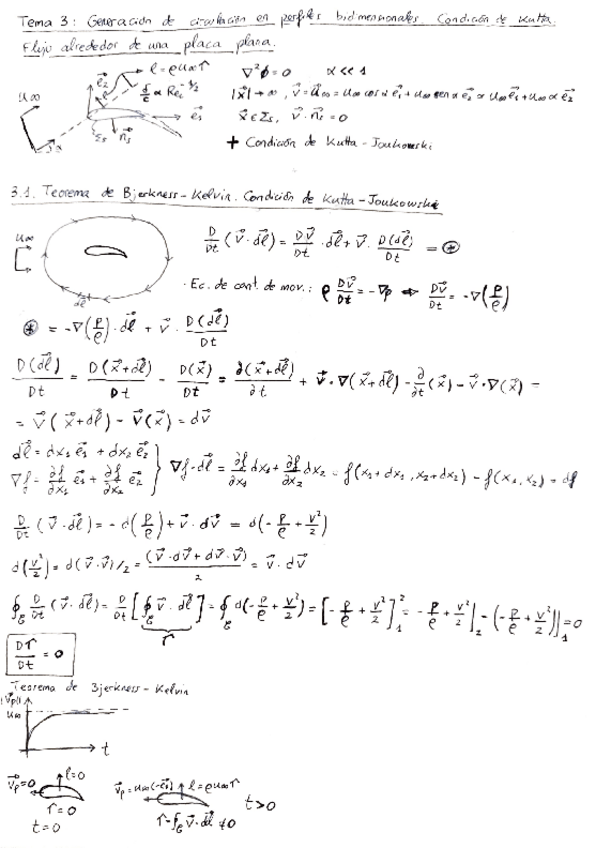 Tema 3: Generación de circulación en perfiles bidimensionales. Condición de Kutta.
Flujo alrededor de una placa plana.
l = ρu∞Γ
∇²φ = 0    α << 1
u∞    e⃗₂    δ/c ∝ Re^-1/2    e⃗₁    |x⃗| → ∞, v⃗ = u⃗∞ = u∞ cos α e⃗₁ + u∞ sen α e⃗₂ ≃ u∞ e⃗₁ + u∞ α e⃗₂
α    Σs    n⃗s    x⃗ ∈ Σs, v⃗ · n⃗s = 0
+ Condición de Kutta-Joukowski
3.1. Teorema de Bjerkness-Kelvin. Condición de Kutta-Joukowski
u∞    dl⃗    D/Dt (v⃗ · dl⃗) = Dv⃗/Dt · dl⃗ + v⃗ · D(dl⃗)/Dt = ⊛
· Ec. de cant. de mov.: ρ Dv⃗/Dt = -∇p ⇒ Dv⃗/Dt = -∇(p/ρ)
⊛ = -∇(p/ρ) · dl⃗ + v⃗ · D(dl⃗)/Dt
D(dl⃗)/Dt = D(x⃗+dl⃗)/Dt - D(x⃗)/Dt = ∂(x⃗+dl⃗)/∂t + v⃗ · ∇(x⃗+dl⃗) - ∂/∂t (x⃗) - v⃗ · ∇(x⃗) =
= v⃗(x⃗+dl⃗) - v⃗(x⃗) = dv⃗
dl⃗ = dx₁ e⃗₁ + dx₂ e⃗₂
∇f = ∂f/∂x₁ e⃗₁ + ∂f/∂x₂ e⃗₂ } ∇f · dl⃗ = ∂f/∂x₁ dx₁ + ∂f/∂x₂ dx₂ = f(x₁+dx₁, x₂+dx₂) - f(x₁, x₂) = df
D/Dt (v⃗ · dl⃗) = -d(p/ρ) + v⃗ · dv⃗ = d(-p/ρ + v²/2)
d(v²/2) = d(v⃗ · v⃗)/2 = (v⃗ · dv⃗ + dv⃗ · v⃗)/2 = v⃗ · dv⃗
∮ D/Dt (v⃗ · dl⃗) = D/Dt [∮ v⃗ · dl⃗] = ∮ d(-p/ρ + v²/2) = [-p/ρ + v²/2]₁² = -p/ρ + v²/2|₂ - (-p/ρ + v²/2)|₁ = 0
Γ
DΓ/Dt = 0
Teorema de Bjerkness-Kelvin
|v⃗p|
u∞
t
v⃗p = 0    l = 0    v⃗p = u∞(-e⃗₁)    l = ρu∞Γ
Γ = 0    Γ = ∮ v⃗ · dl⃗ ≠ 0    t > 0
t = 0